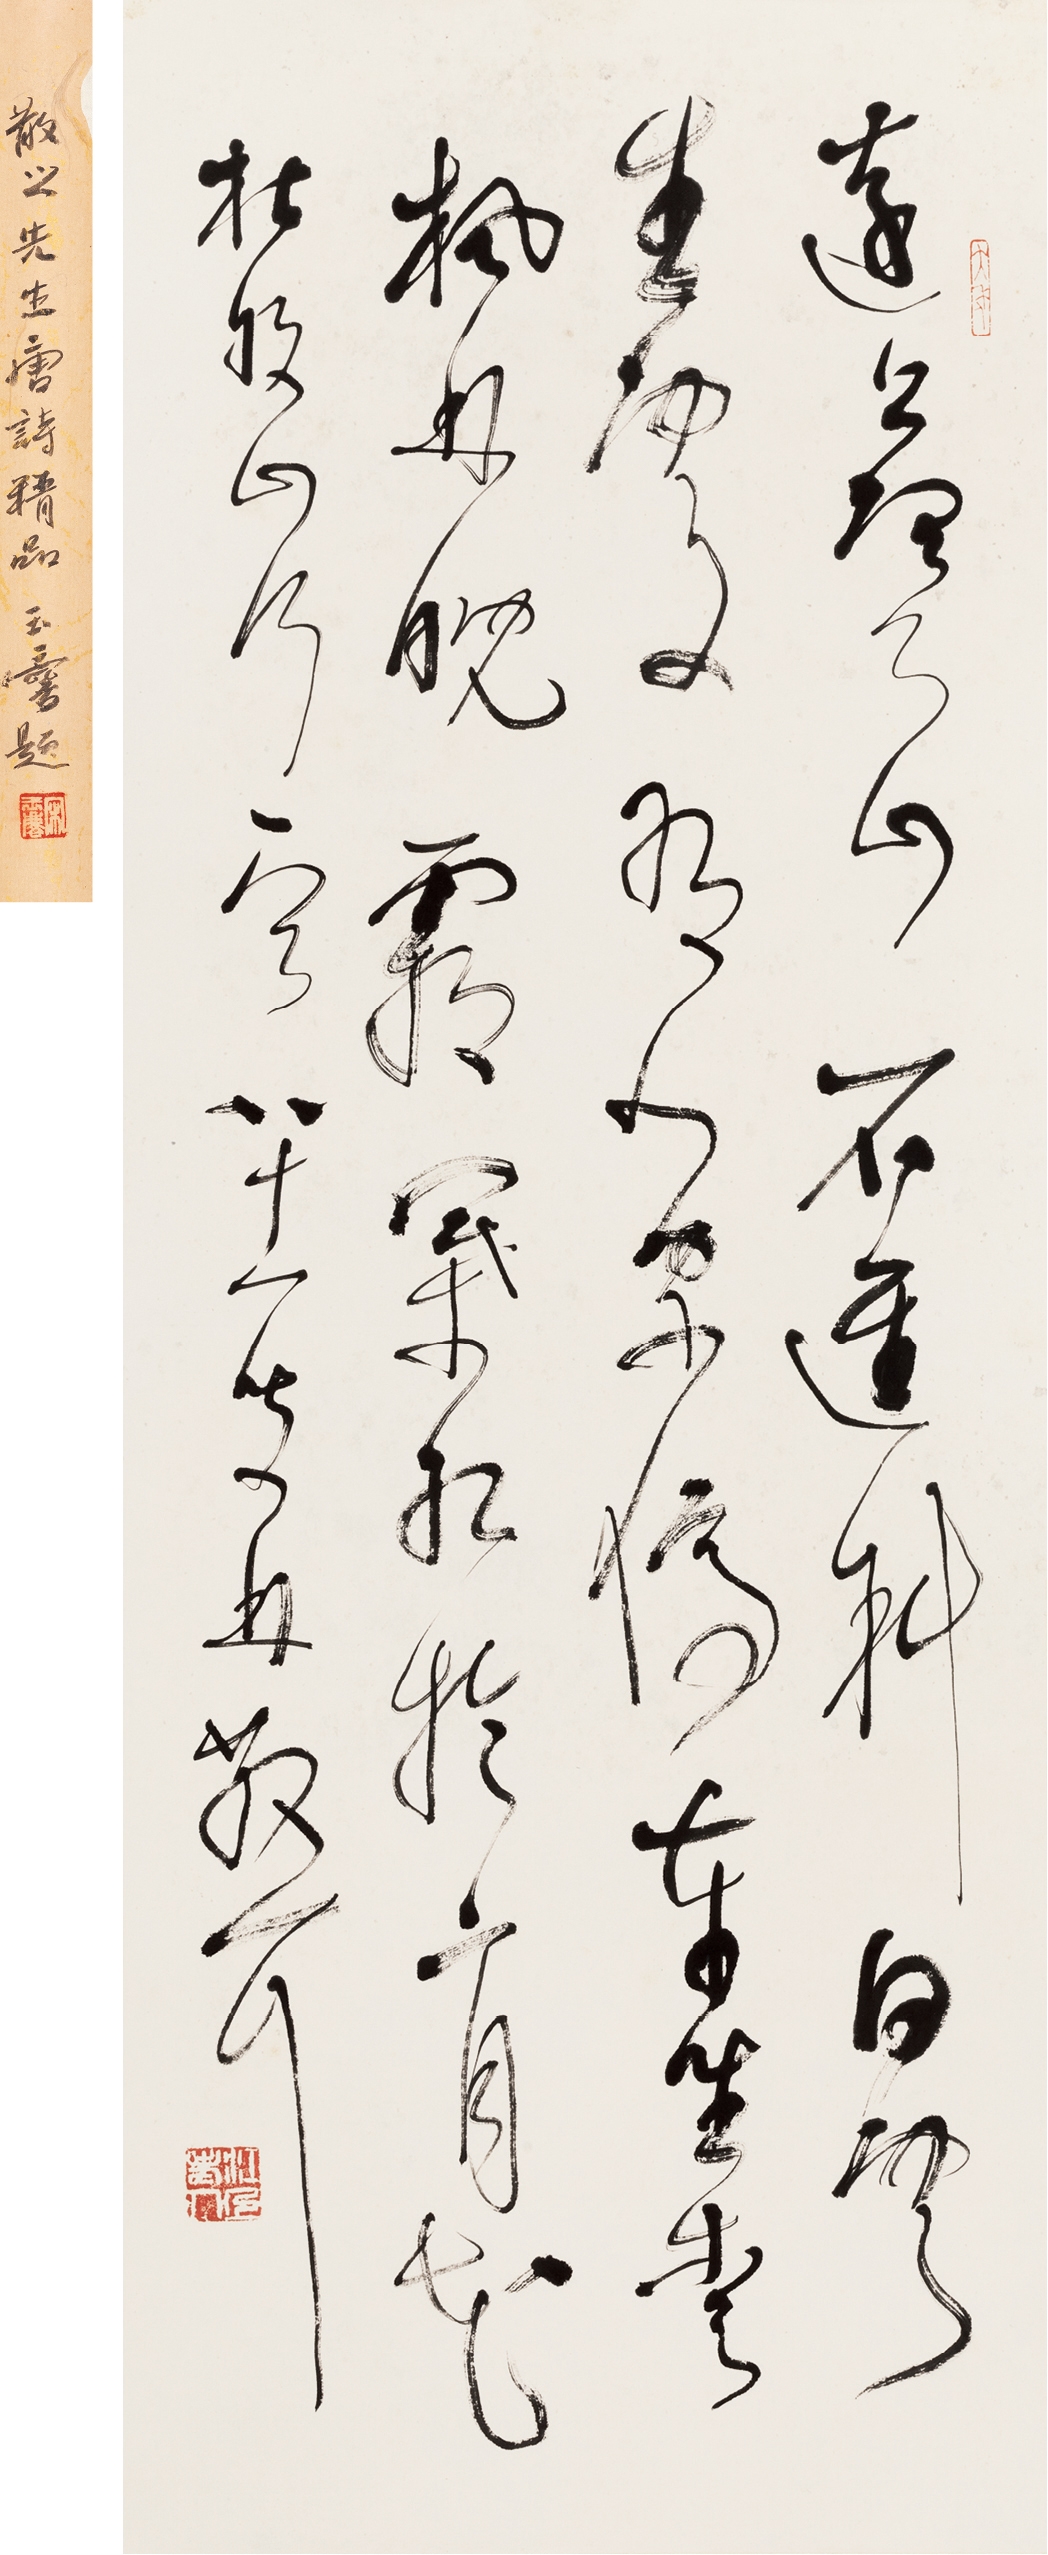 遠上寒山石逕斜白雲
生處有人家停車坐愛
楓林晚霜葉紅於二月花
杜牧山行八十一叟林散耳
散之先生唐詩精品 玉麐題